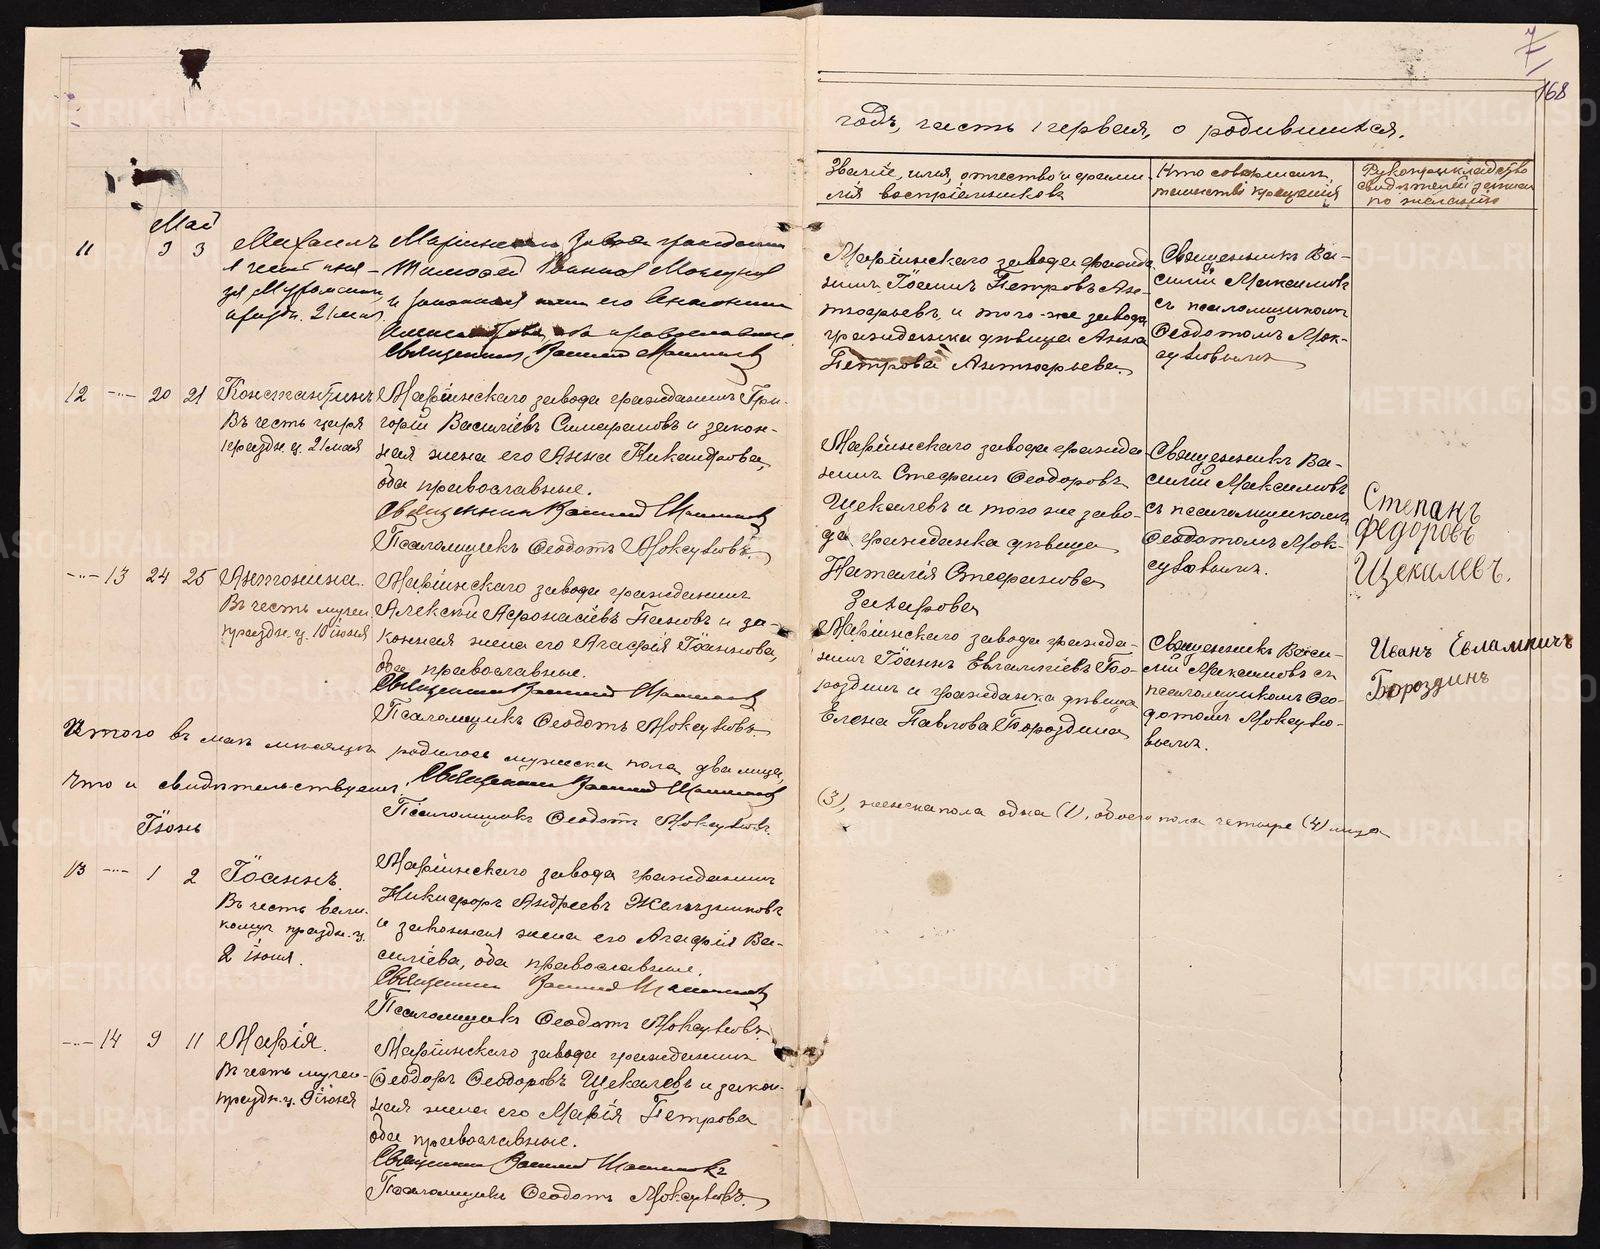 7
168
годъ, часть первая, о родившихся.
Званіе, имя, отчество и фами-
лія воспріемниковъ
Кто совершалъ
таинство крещенія
Рукоприкладство
свидѣтелей записи
по желанію
Май
11 3 3 Михаилъ
Маріинскаго завода гражданинъ
Тимофей
и законная жена его
Священникъ Василій
Маріинскаго завода гражда-
нинъ Іоаннъ Петровъ Ан-
тоарьевъ, и того-же завода
гражданка дѣвица Анна
Петрова
Священникъ Ва-
силій Максимовъ
съ псаломщикомъ
Ѳеодотомъ Мок-
12 -"- 20 21 Константинъ
Въ честь царя
праздн. ц. 21 мая
Маріинскаго завода гражданинъ Гри-
горій Василіевъ и закон-
ная жена его Анна Никандрова,
оба православные.
Священникъ Василій
Псаломщикъ Ѳеодотъ
Маріинскаго завода гражда-
нинъ Стефанъ Ѳеодоровъ
Щекалевъ и того же заво-
да гражданка дѣвица
Наталія Стефанова
Захарова
Священникъ Ва-
силій Максимовъ
съ псаломщикомъ
Ѳеодотомъ Мок-
Степанъ
Федоровъ
Щекалевъ.
-"- 13 24 25 Антонина.
Въ честь мучен.
праздн. ц. 10 іюня
Маріинскаго завода гражданинъ
Алексѣй Афонасіевъ Пановъ и за-
конная жена его Агафія Іоаннова,
оба православные.
Священникъ Василій
Псаломщикъ Ѳеодотъ
Маріинскаго завода гражда-
нинъ Іоаннъ Евлампіевъ Бо-
роздинъ и гражданка дѣвица
Елена Павлова Бороздина
Священникъ Васи-
лій Максимовъ съ
псаломщикомъ Ѳео-
дотомъ
Иванъ Евлампичъ
Бороздинъ
Итого въ маѣ мѣсяцѣ родилось мужска пола два лица,
(3), женска пола одна (1), обоего пола четыре (4) лица
Что и свидѣтельствуемъ: Священникъ Василій
Псаломщикъ Ѳеодотъ
Іюнь
13 -"- 1 2 Іоаннъ.
Въ честь вели-
комуч. праздн. ц.
2 іюня.
Маріинскаго завода гражданинъ
Никифоръ Андреевъ Желѣзниковъ
и законная жена его Агафія Ва-
силіева, оба православные.
Священникъ Василій
Псаломщикъ Ѳеодотъ
-"- 14 9 11 Марія.
Въ честь мучен.
праздн. ц. 9 іюня
Маріинскаго завода гражданинъ
Ѳеодоръ Ѳеодоровъ Щекалевъ и закон-
ная жена его Марія Петрова
оба православные.
Священникъ Василій
Псаломщикъ Ѳеодотъ
METRIKI.GASO-URAL.RU